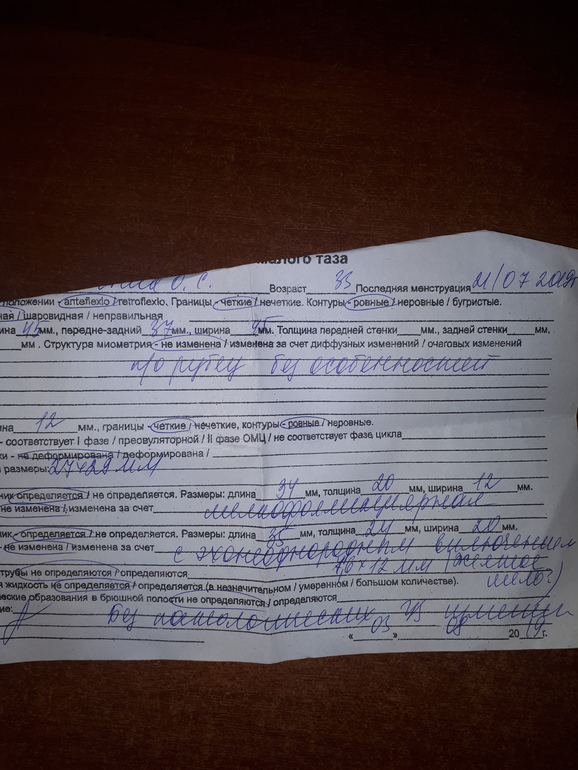 малого таза
О. С. Возраст 33 Последняя менструация 21/07 2019г
положении - anteflexio / retroflexio, Границы - четкие / нечеткие. Контуры - ровные / неровные / бугристые.
ная / шаровидная / неправильная
ина мм., передне-задний 37 мм., ширина мм. Толщина передней стенки мм., задней стенки мм.
мм . Структура миометрия - не изменена / изменена за счет диффузных изменений / очаговых изменений
п/о рубец без особенностей
на 12 мм., границы - четкие / нечеткие, контуры - ровные / неровные.
- соответствует I фазе / преовуляторной / II фазе ОМЦ / не соответствует фазе цикла
ки - не деформирована / деформирована /
размеры: 27х29 мм
ник определяется / не определяется. Размеры: длина 34 мм, толщина 20 мм, ширина 12 мм.
не изменена / изменена за счет мелкофолликулярная
ник - определяется / не определяется. Размеры: длина 35 мм, толщина 24 мм, ширина 20 мм.
- не изменена / изменена за счет с эхонеоднородным включением
трубы не определяются / определяются х12 мм (желтое
я жидкость не определяется / определяется (в незначительном / умеренном / большом количестве). тело?)
еские образования в брюшной полости не определяются / определяются
ие: Без патологических
« 03 » 20 19 г.